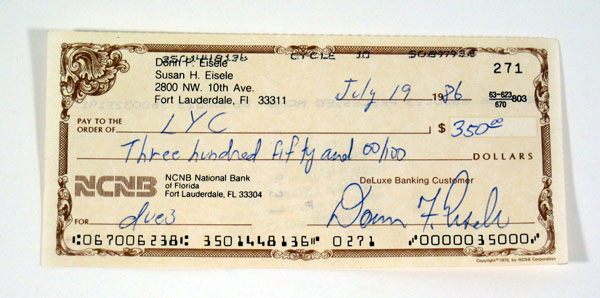 3501448136 CYCLE 10
Donn F. Eisele
Susan H. Eisele
2800 NW. 10th Ave.
Fort Lauderdale, Fl 33311
271
July 19 1986
63-623 803
670
PAY TO THE
ORDER OF LYC $ 350.00
Three hundred fifty and 00/100 DOLLARS
NCNB NCNB National Bank
of Florida
Fort Lauderdale, FL 33304
DeLuxe Banking Customer
FOR dues Donn F. Eisele
067006238 3501448136 0271 0000035000
Copyright 1975, by NCNB Corporation